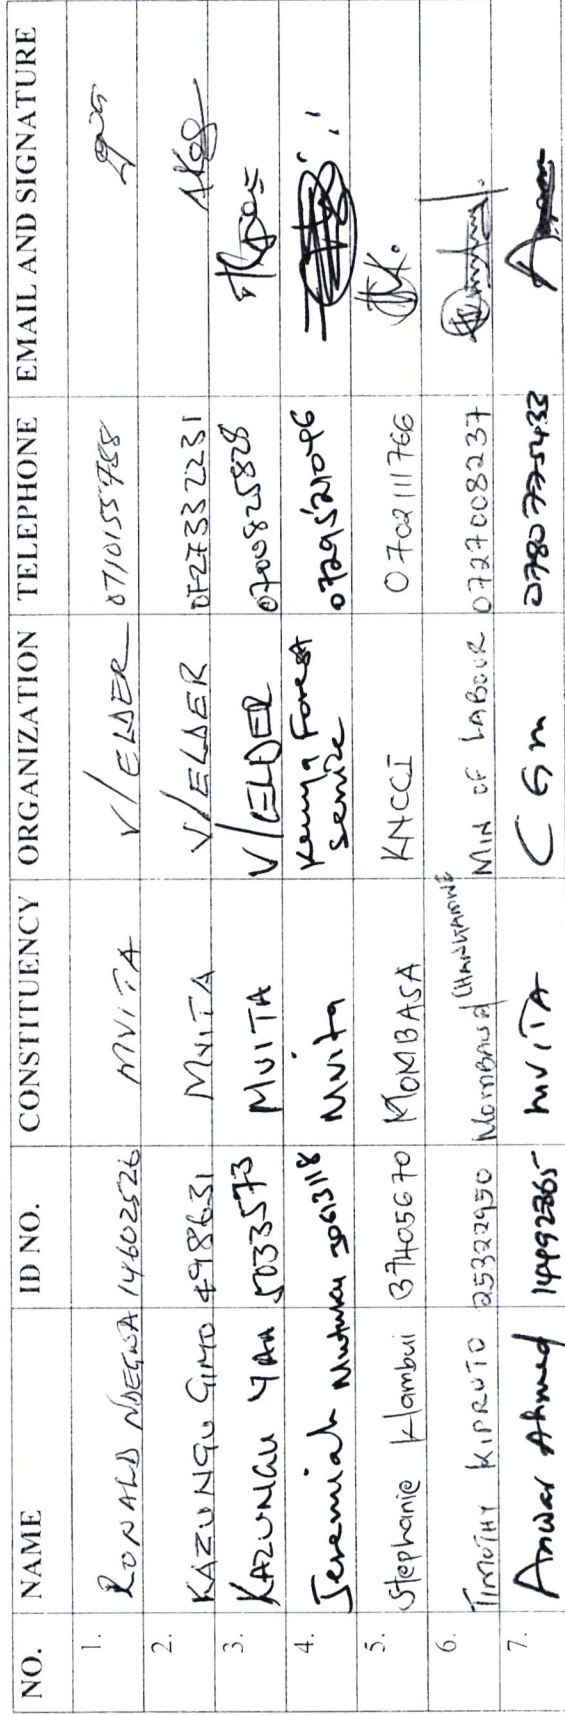 NO. NAME ID NO. CONSTITUENCY ORGANIZATION TELEPHONE EMAIL AND SIGNATURE
1. RONALD NDEGWA 14602526 MVITA V/ELDER 0710155988
2. KAZUNGU GIMO 498631 MVITA V/ELDER 0727332231
3. KAZUNGU YAA 5033573 MVITA V/ELDER 0700825828
4. Jeremiah Mutuku 30613118 Mvita Kenya Forest 0729521096
Service
5. Stephanie Wambui 37405670 MOMBASA KNCCI 0702111766
6. TIMOTHY KIPRUTO 25322950 Mombasa CHANGAMWE MIN OF LABOUR 0727008237
7. Anwar Ahmed 14492365 MVITA CGM